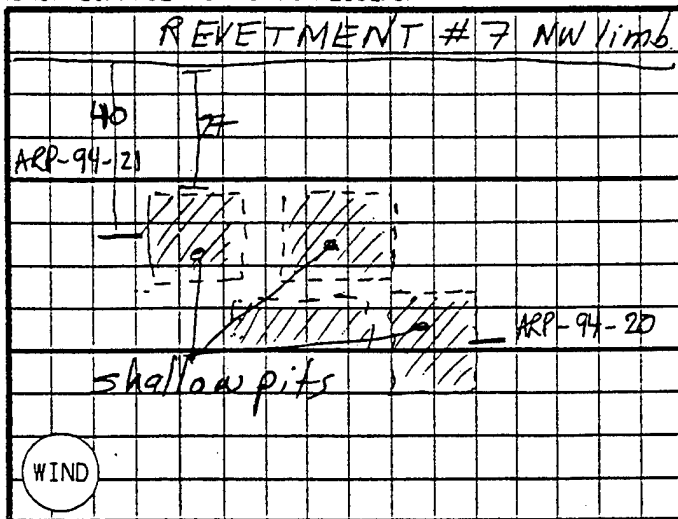 REVETMENT # 7 NW limb
40
27
ARP-94-21
ARP-94-20
shallow pits
WIND